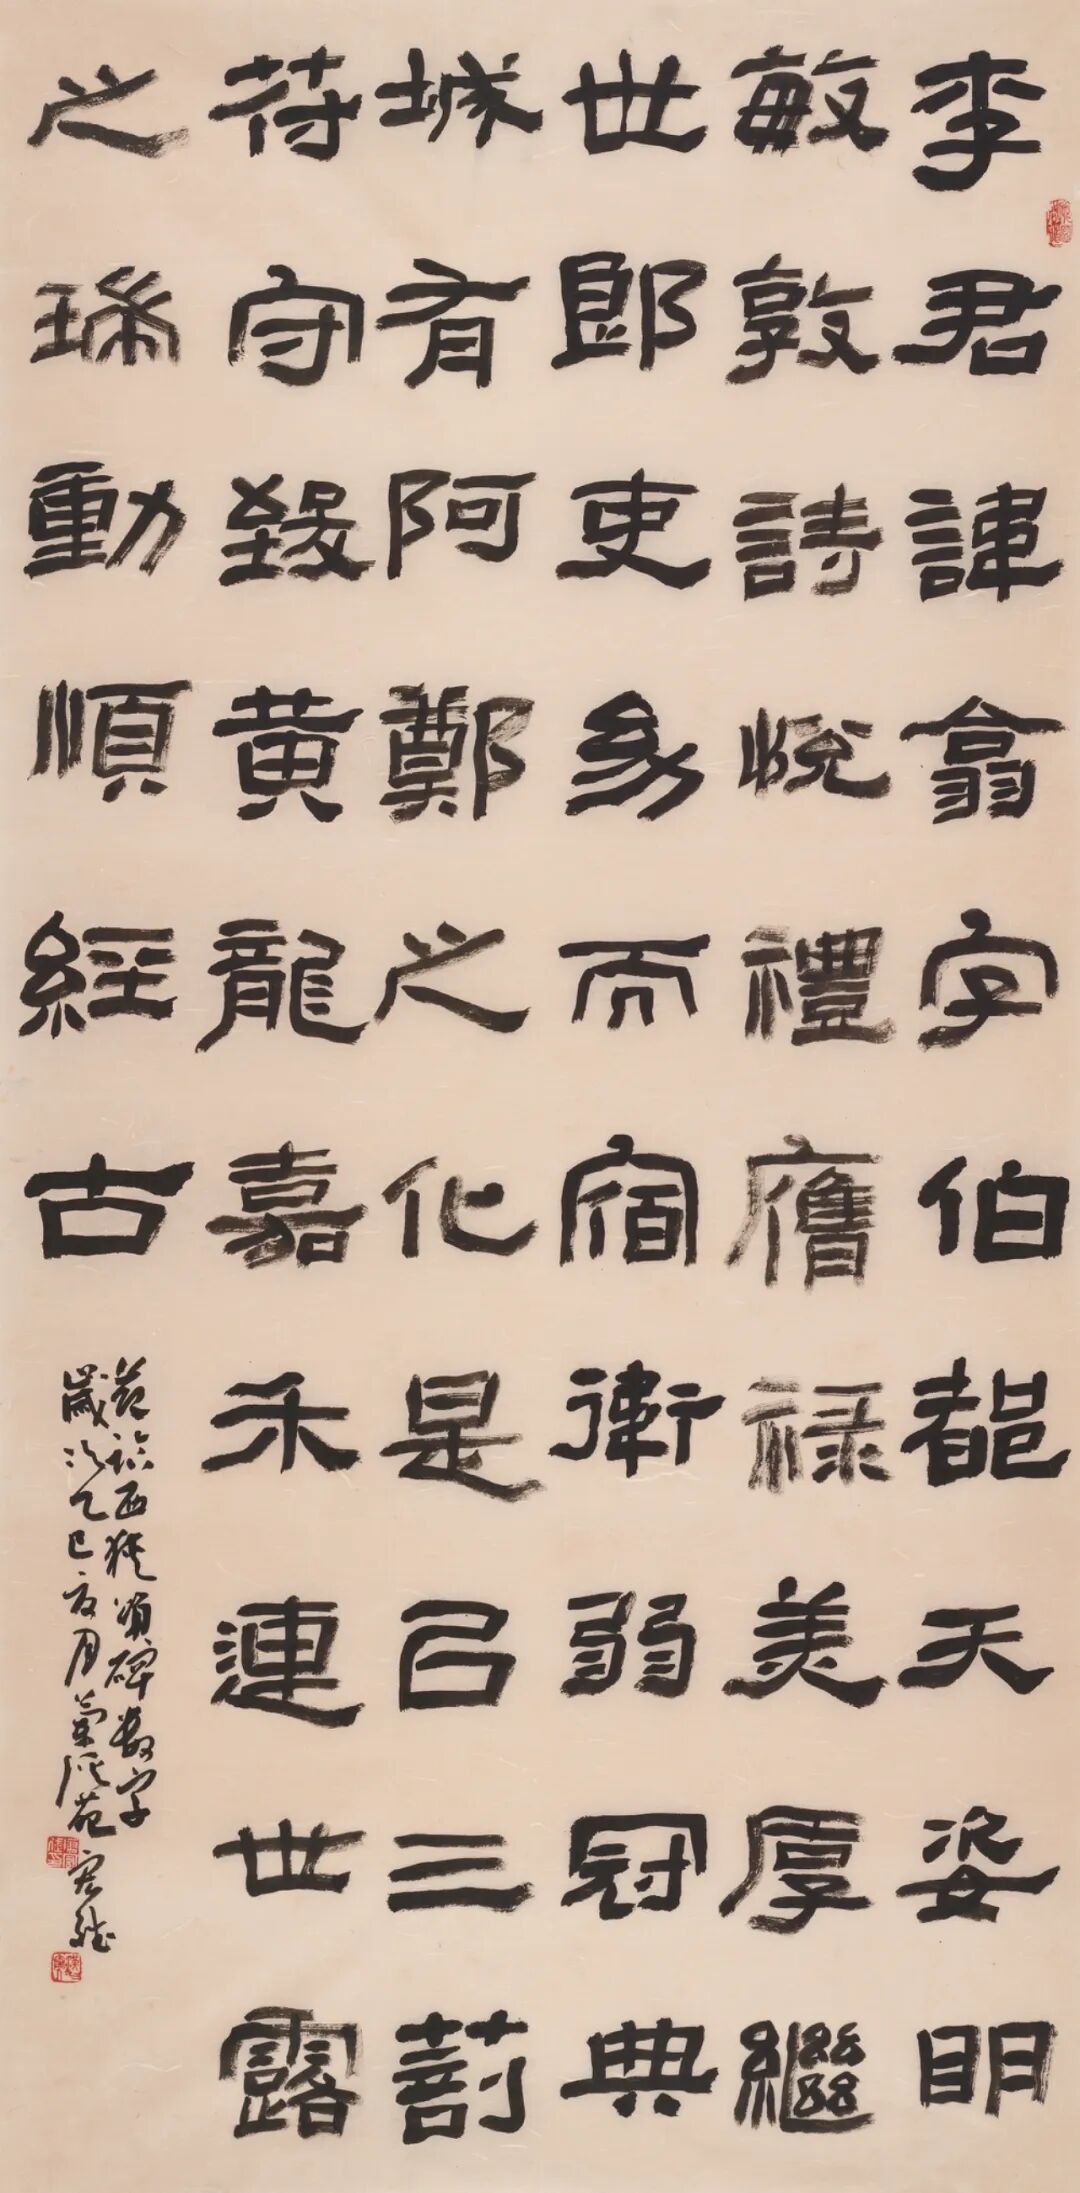 李君諱翕字伯都天姿明
敏敦詩悅禮膺禄美厚繼
世郎吏幼而宿衛弱冠典
城有阿鄭之化是以三剖
苻守致黄龍嘉禾連世露
之瑞動順經古
節臨西狹頌碑數字
歲次乙巳夏月